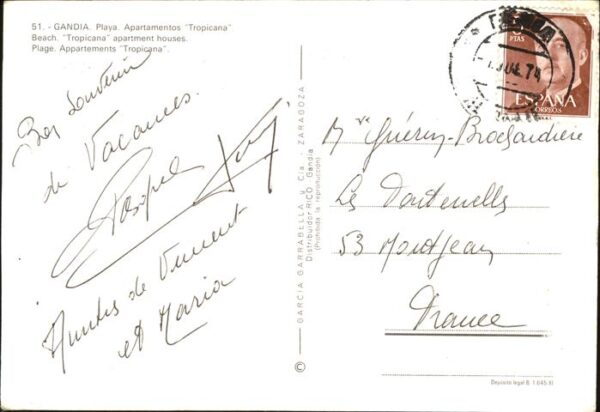 51. - GANDIA. Playa. Apartamentos "Tropicana"
Beach. "Tropicana" apartment houses.
Plage. Appartements "Tropicana".
Bon Souvenir
de Vacances.
Amitiés de Vincent
et Maria
GARCIA GARRABELLA y Cia. - ZARAGOZA
Distribuidor RICO - Gandia
(Prohibida la reproducción)
©
PTAS
ESPAÑA
CORREOS
74
Mr Guérin-Brochardière
Les
53 Montjean
France
Depósito legal B. 1.645-XI